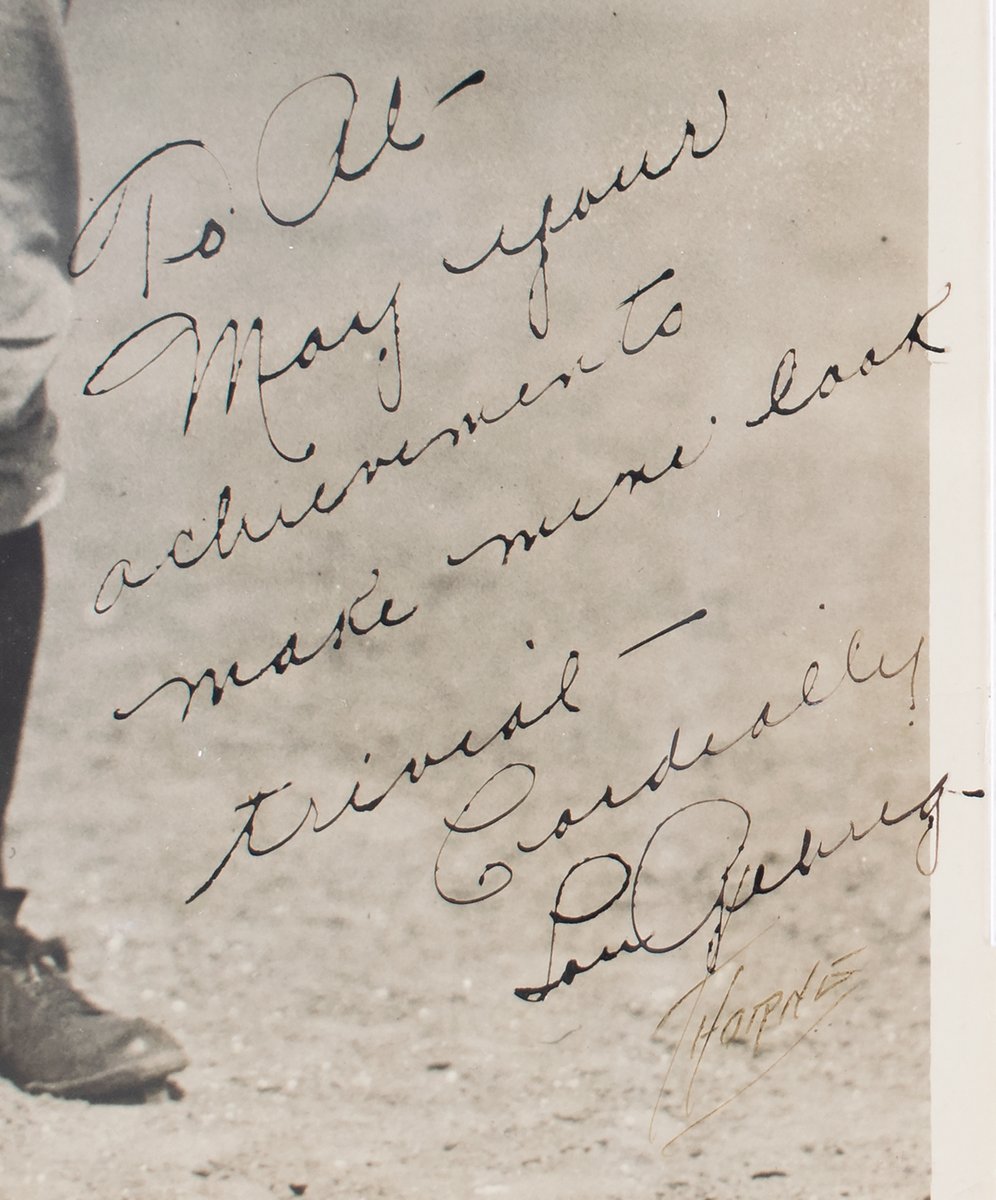 To Al-
May your
achievements
make mine look
trivial -
Cordially
Lou Gehrig-
THORNE